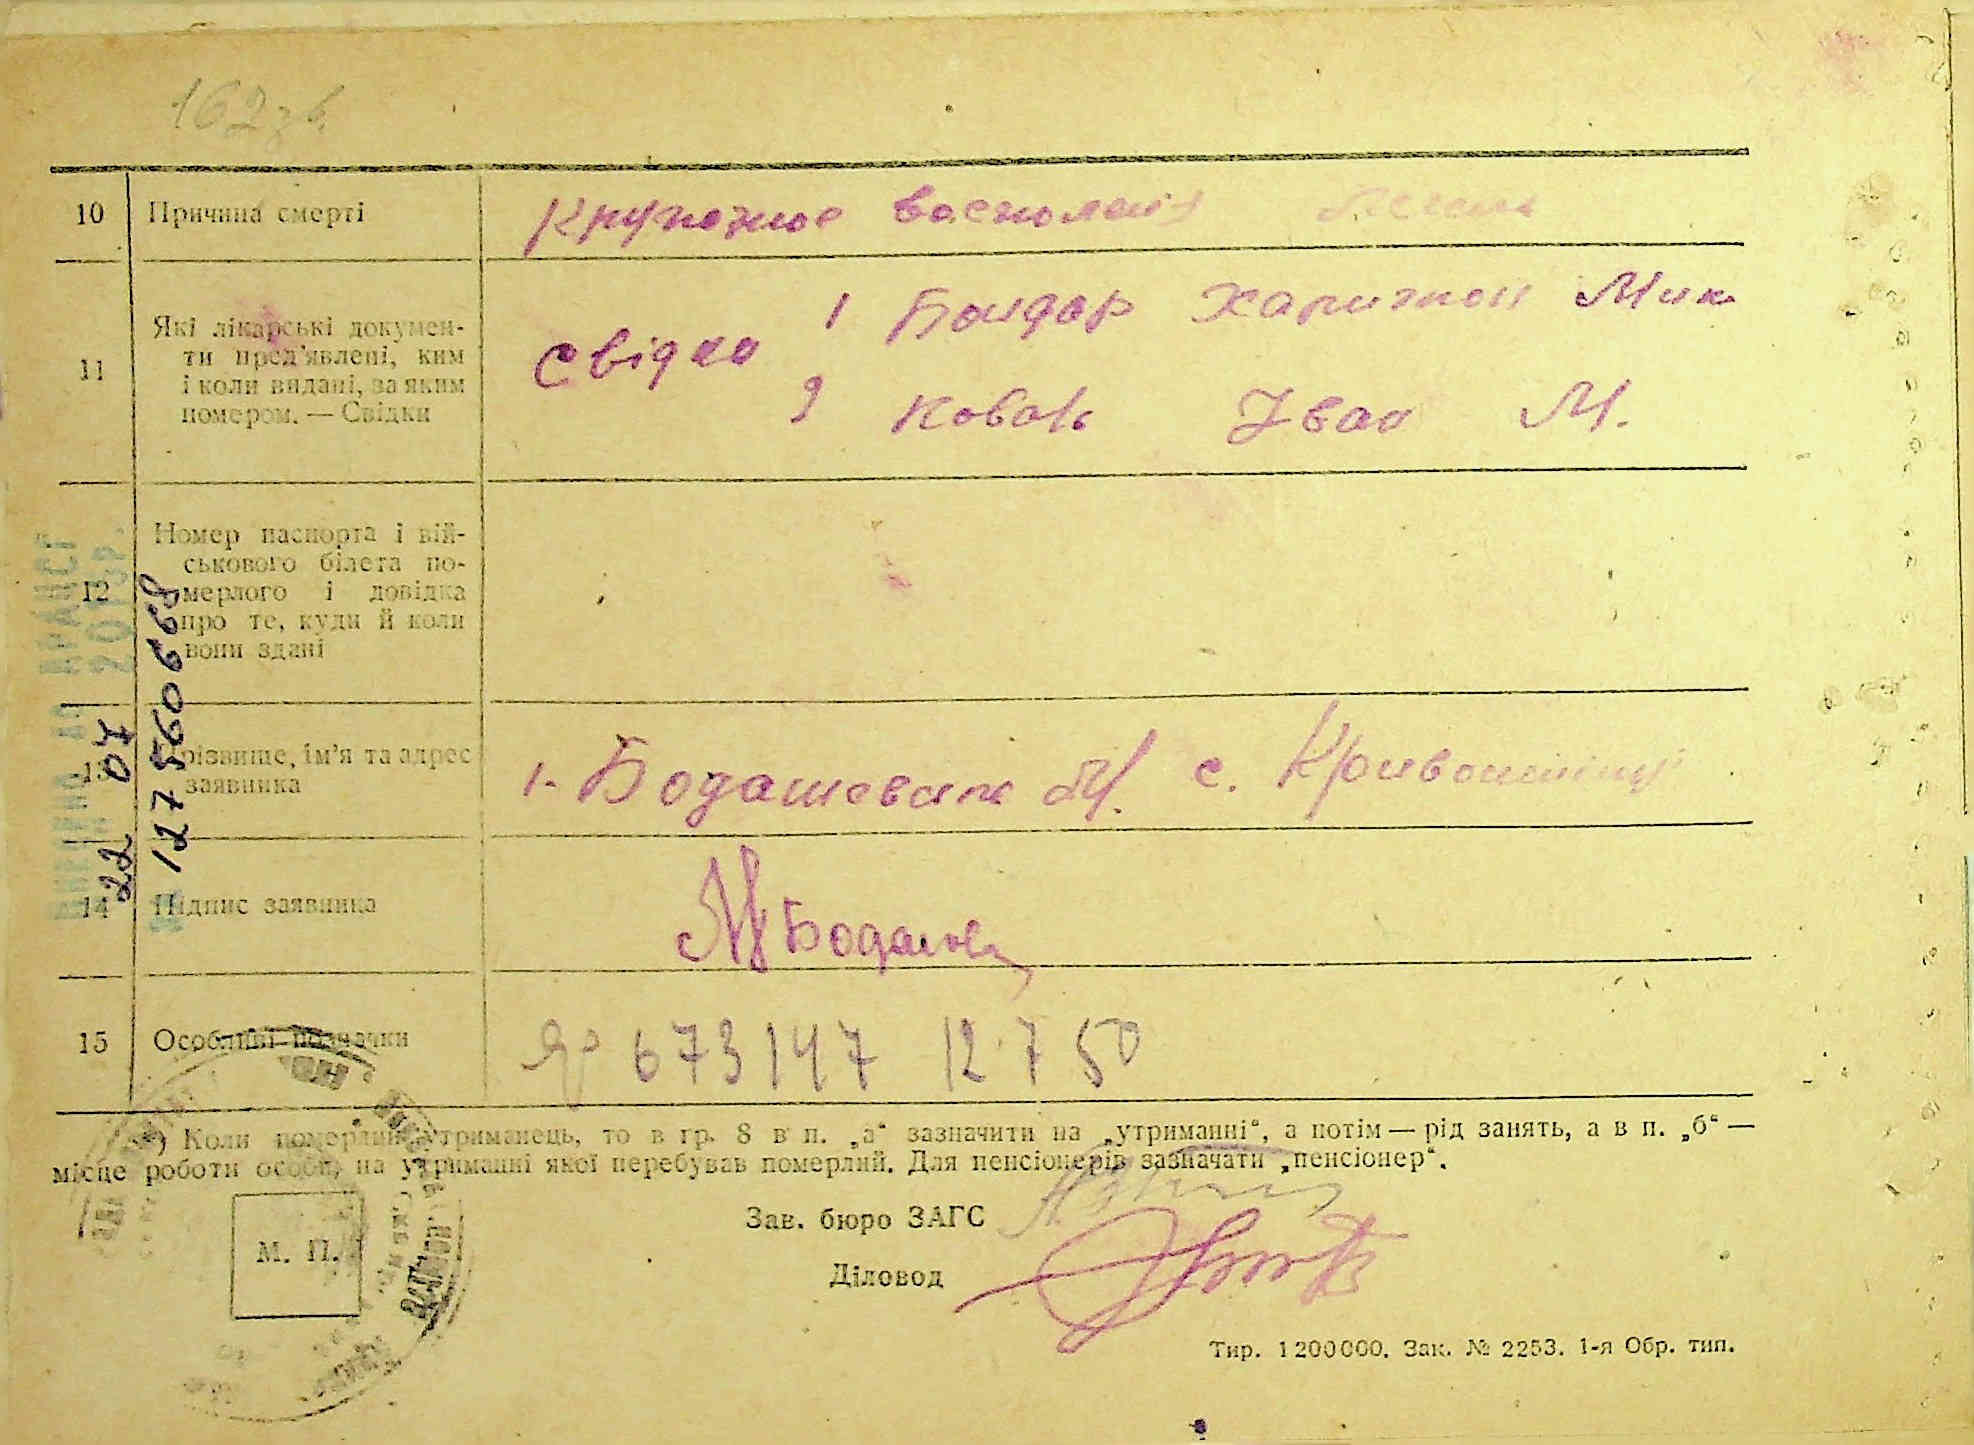 162 зв.
10 Причина смерті Крупозное восполені легень
11 Які лікарські докумен-
ти пред'явлені, ким
і коли видані, за яким
номером. — Свідки
Свідки 1 Бондар Харитон Мик
2 Коваль Іван М.
12 Номер паспорта і вій-
ськового білета по-
мерлого і довідка
про те, куди й коли
вони здані
13 Прізвище, ім'я та адрес
заявника
1. Бодашевська М. с. Кривошиїнці
14 Підпис заявника
15 Особливі позначки № 673147 12.7 50
22 07
№ 127560668
*) Коли померлий утриманець, то в гр. 8 в п. „а“ зазначити на „утриманні“, а потім — рід занять, а в п. „б“ —
місце роботи особи, на утриманні якої перебував померлий. Для пенсіонерів зазначати „пенсіонер“.
Зав. бюро ЗАГС
М. П.
Діловод
Тир. 1200000. Зак. № 2253. 1-я Обр. тип.